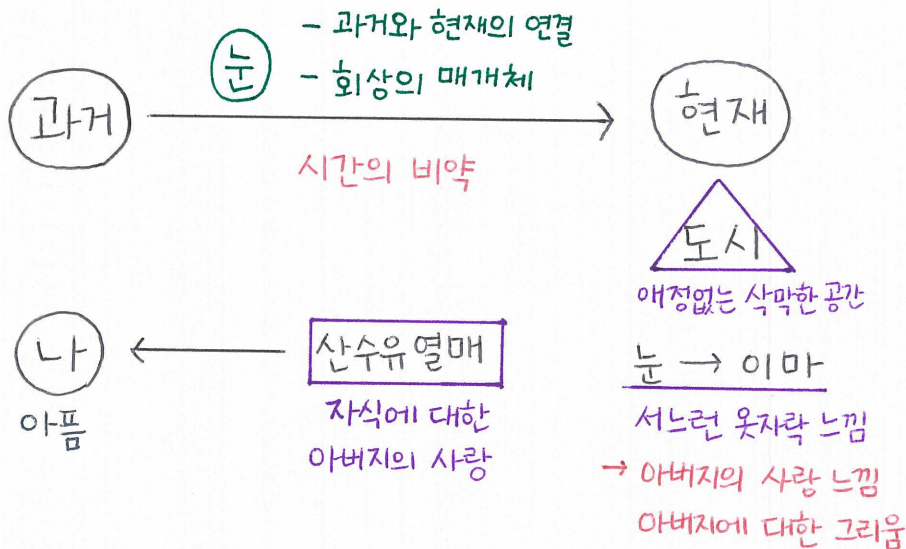 - 과거와 현재의 연결
눈
- 회상의 매개체
과거
현재
시간의 비약
도시
애정없는 삭막한 공간
나
산수유 열매
눈 → 이마
아픔
자식에 대한
아버지의 사랑
서느런 옷자락 느낌
→ 아버지의 사랑 느낌
아버지에 대한 그리움